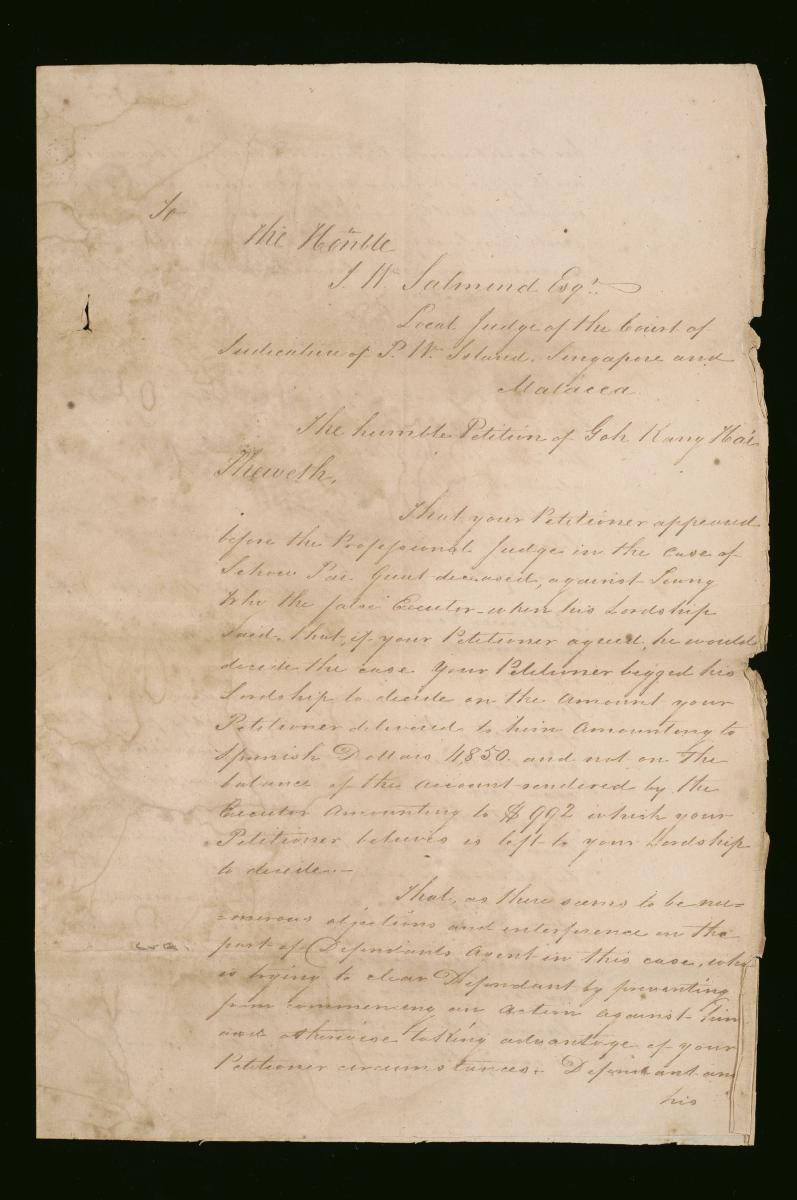 To
The Honble
J. W. Salmond Esqr.
Local Judge of the Court of
Judicature of P. W. Island, Singapore and
Malacca
The humble Petition of Goh Kang Hai
Sheweth,
That your Petitioner appeared
before the Professional Judge in the case of
Schow Pae Guat deceased, against Seang
Who the false Executor - when his Lordship
said, that, if your Petitioner agreed, he would
decide the case your Petitioner begged his
Lordship to decide on the amount your
Petitioner delivered to him Amounting to
Spanish Dollars 4850 and not on the
balance of the account rendered by the
Executor Amounting to $992 which your
Petitioner believes is left to your Lordship
to decide. -
That, as there seems to be nu=
=merous objections and interference on the
part of Defendants Agent in this case, who
is trying to clear Defendant by preventing
from commencing an Action against him
and otherwise taking advantage of your
Petitioner circumstances. Defendant and
his